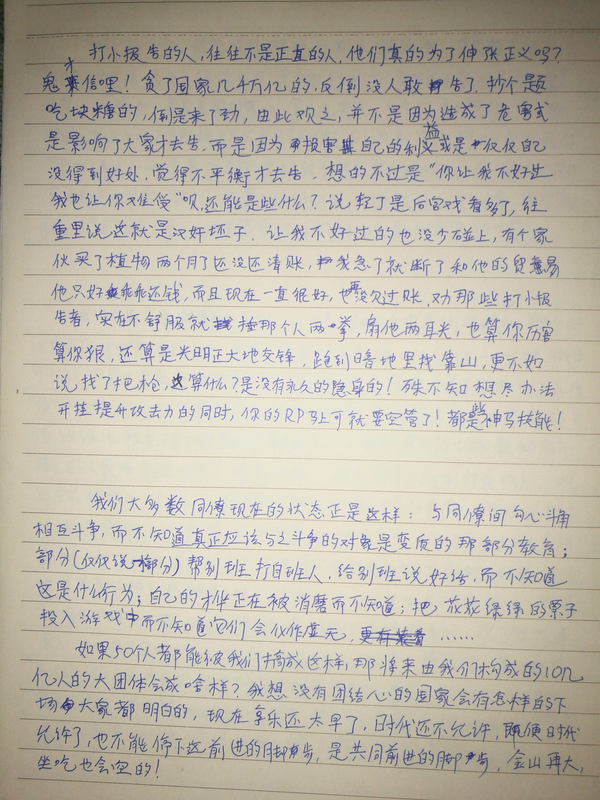 打小报告的人，往往不是正直的人，他们真的为了伸张正义吗？
鬼才信哩！贪了国家几千万亿的，反倒没人敢告了，抄个题
吃块糖的，倒是来了劲，由此观之，并不是因为造成了危害或
是影响了大家才去告，而是因为损害其自己的利益或是仅仅自己
没得到好处，觉得不平衡才去告，想的不过是“你让我不好过
我也让你难受”呗，还能是些什么？说轻了是后宫戏看多了，往
重里说这就是汉奸坯子，让我不好过的也没少碰上，有个家
伙买了植物两个月了还没还清账，我急了就断了和他的贸易
他只好乖乖还钱，而且现在一直很好，也再没欠过账，劝那些打小报
告者，实在不舒服就捶那个人两拳，扇他两耳光，也算你厉害
算你狠，还算是光明正大地交锋，跑到暗地里找靠山，更不如
说找了把枪，这算什么？是没有永久的隐身的！殊不知想尽办法
开挂提升攻击力的同时，你的RP马上可就要空管了！都是些神马技能！
我们大多数同僚现在的状态正是这样：与同僚间勾心斗角
相互斗争，而不知道真正应该与之斗争的对象是变质的那部分教育；
部分（仅仅说一部分）帮别班打自班人，给别班说好话，而不知道
这是什么行为；自己的才华正在被消磨而不知道；把花花绿绿的票子
投入游戏中而不知道它们会化作虚无，更有某者……
如果50个人都能被我们搞成这样，那将来由我们构成的10几
亿人的大团体会成啥样？我想没有团结心的国家会有怎样的下
场大家都明白的，现在享乐还太早了，时代还不允许，即便时代
允许了，也不能停下这前进的脚步，是共同前进的脚步，金山再大，
坐吃也会空的！